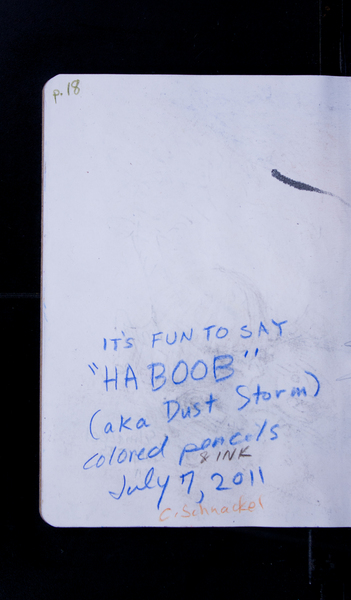 p.18
IT'S FUN TO SAY
"HABOOB"
(aka Dust Storm)
colored pencils
& INK
July 7, 2011
C. Schnackel